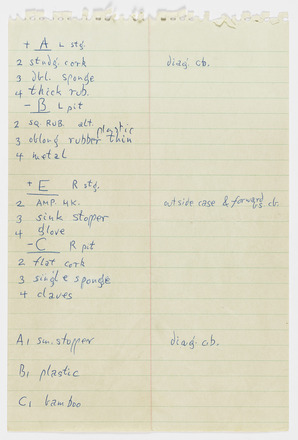 + A L stg.
2 studg. cork diag. cb.
3 dbl. sponge
4 thick rub.
- B L pit
2 sq. RUB. alt. plastic
3 oblong rubber thin
4 metal
+ E R stg.
2 AMP. HK. outside case & forward
3 sink stopper
4 glove
- C R pit
2 flat cork
3 single sponge
4 claves
A1 sm. stopper diag. cb.
B1 plastic
C1 bamboo